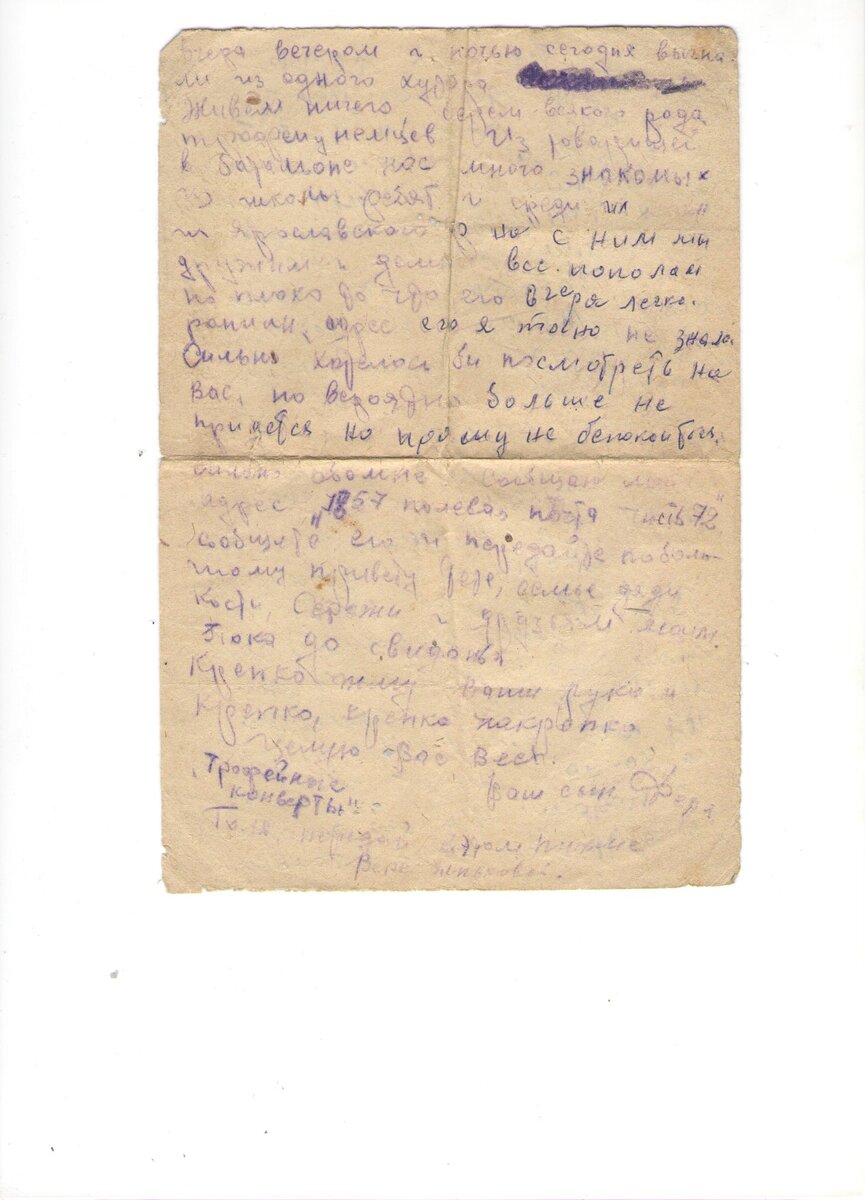 вчера вечером и ночью сегодня выгна-
ли из одного хутора
Живем ничего берем всякого рода
трофеи у немцев Из товарищей
в батальоне нас много знакомых
со школы ребят и среди их
ярославского р на" с ним мы
дружим и делим все пополам
но плохо то что его вчера легко.
ранили, адрес его я точно не знала
Сильно хотелось би посмотреть на
Вас, но вероятно больше не
придется но прошу не беспокоиться
сильно обо мне Сообщаю мой
адрес 57 полевая почта часть 72"
сообщите его и передайте поболь-
шому привету Пете, семье дяди
Кости, Сережи и друзьям
Пока до свиданья
Крепко жму Ваши руки и
Крепко, крепко накрепко
Целую Вас Всех.
Ваш сын
„Трофейные
конверты".
Толя передай в этом письме
Вере